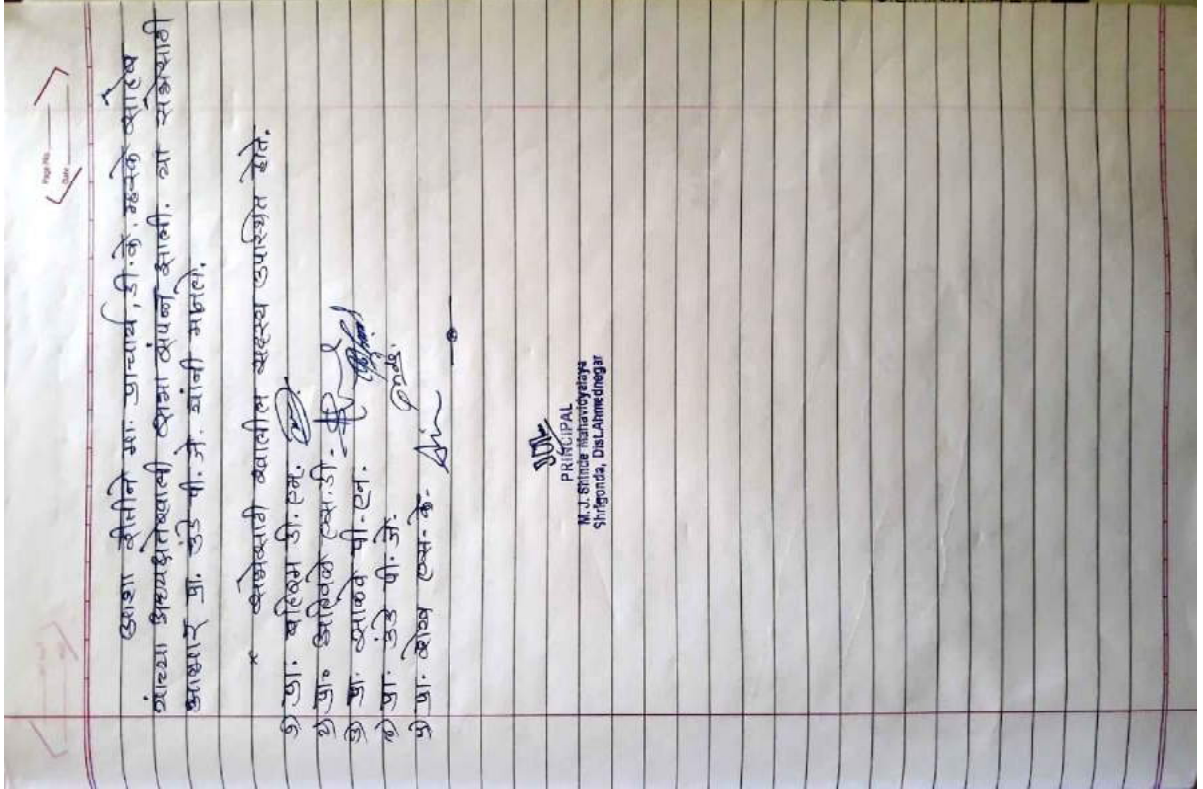 Page No.
Date
अशा रीतीने मा. प्राचार्य, डी. के. म्हस्के साहेब
यांच्या अध्यक्षतेखाली सभा संपन्न झाली. या सभेसाठी
आभार प्रा. उंडे पी. जे. यांनी मानले.
* सभेसाठी खालील सदस्य उपस्थित होते.
१) प्रा. डी. एम.
२) प्रा. एस. डी.
३) प्रा. साळवे पी. एन.
४) प्रा. उंडे पी. जे.
५) प्रा. शेख एस. के.
PRINCIPAL
M.J. Shinde Mahavidyalaya
Shrigonda, Dist.Ahmednagar